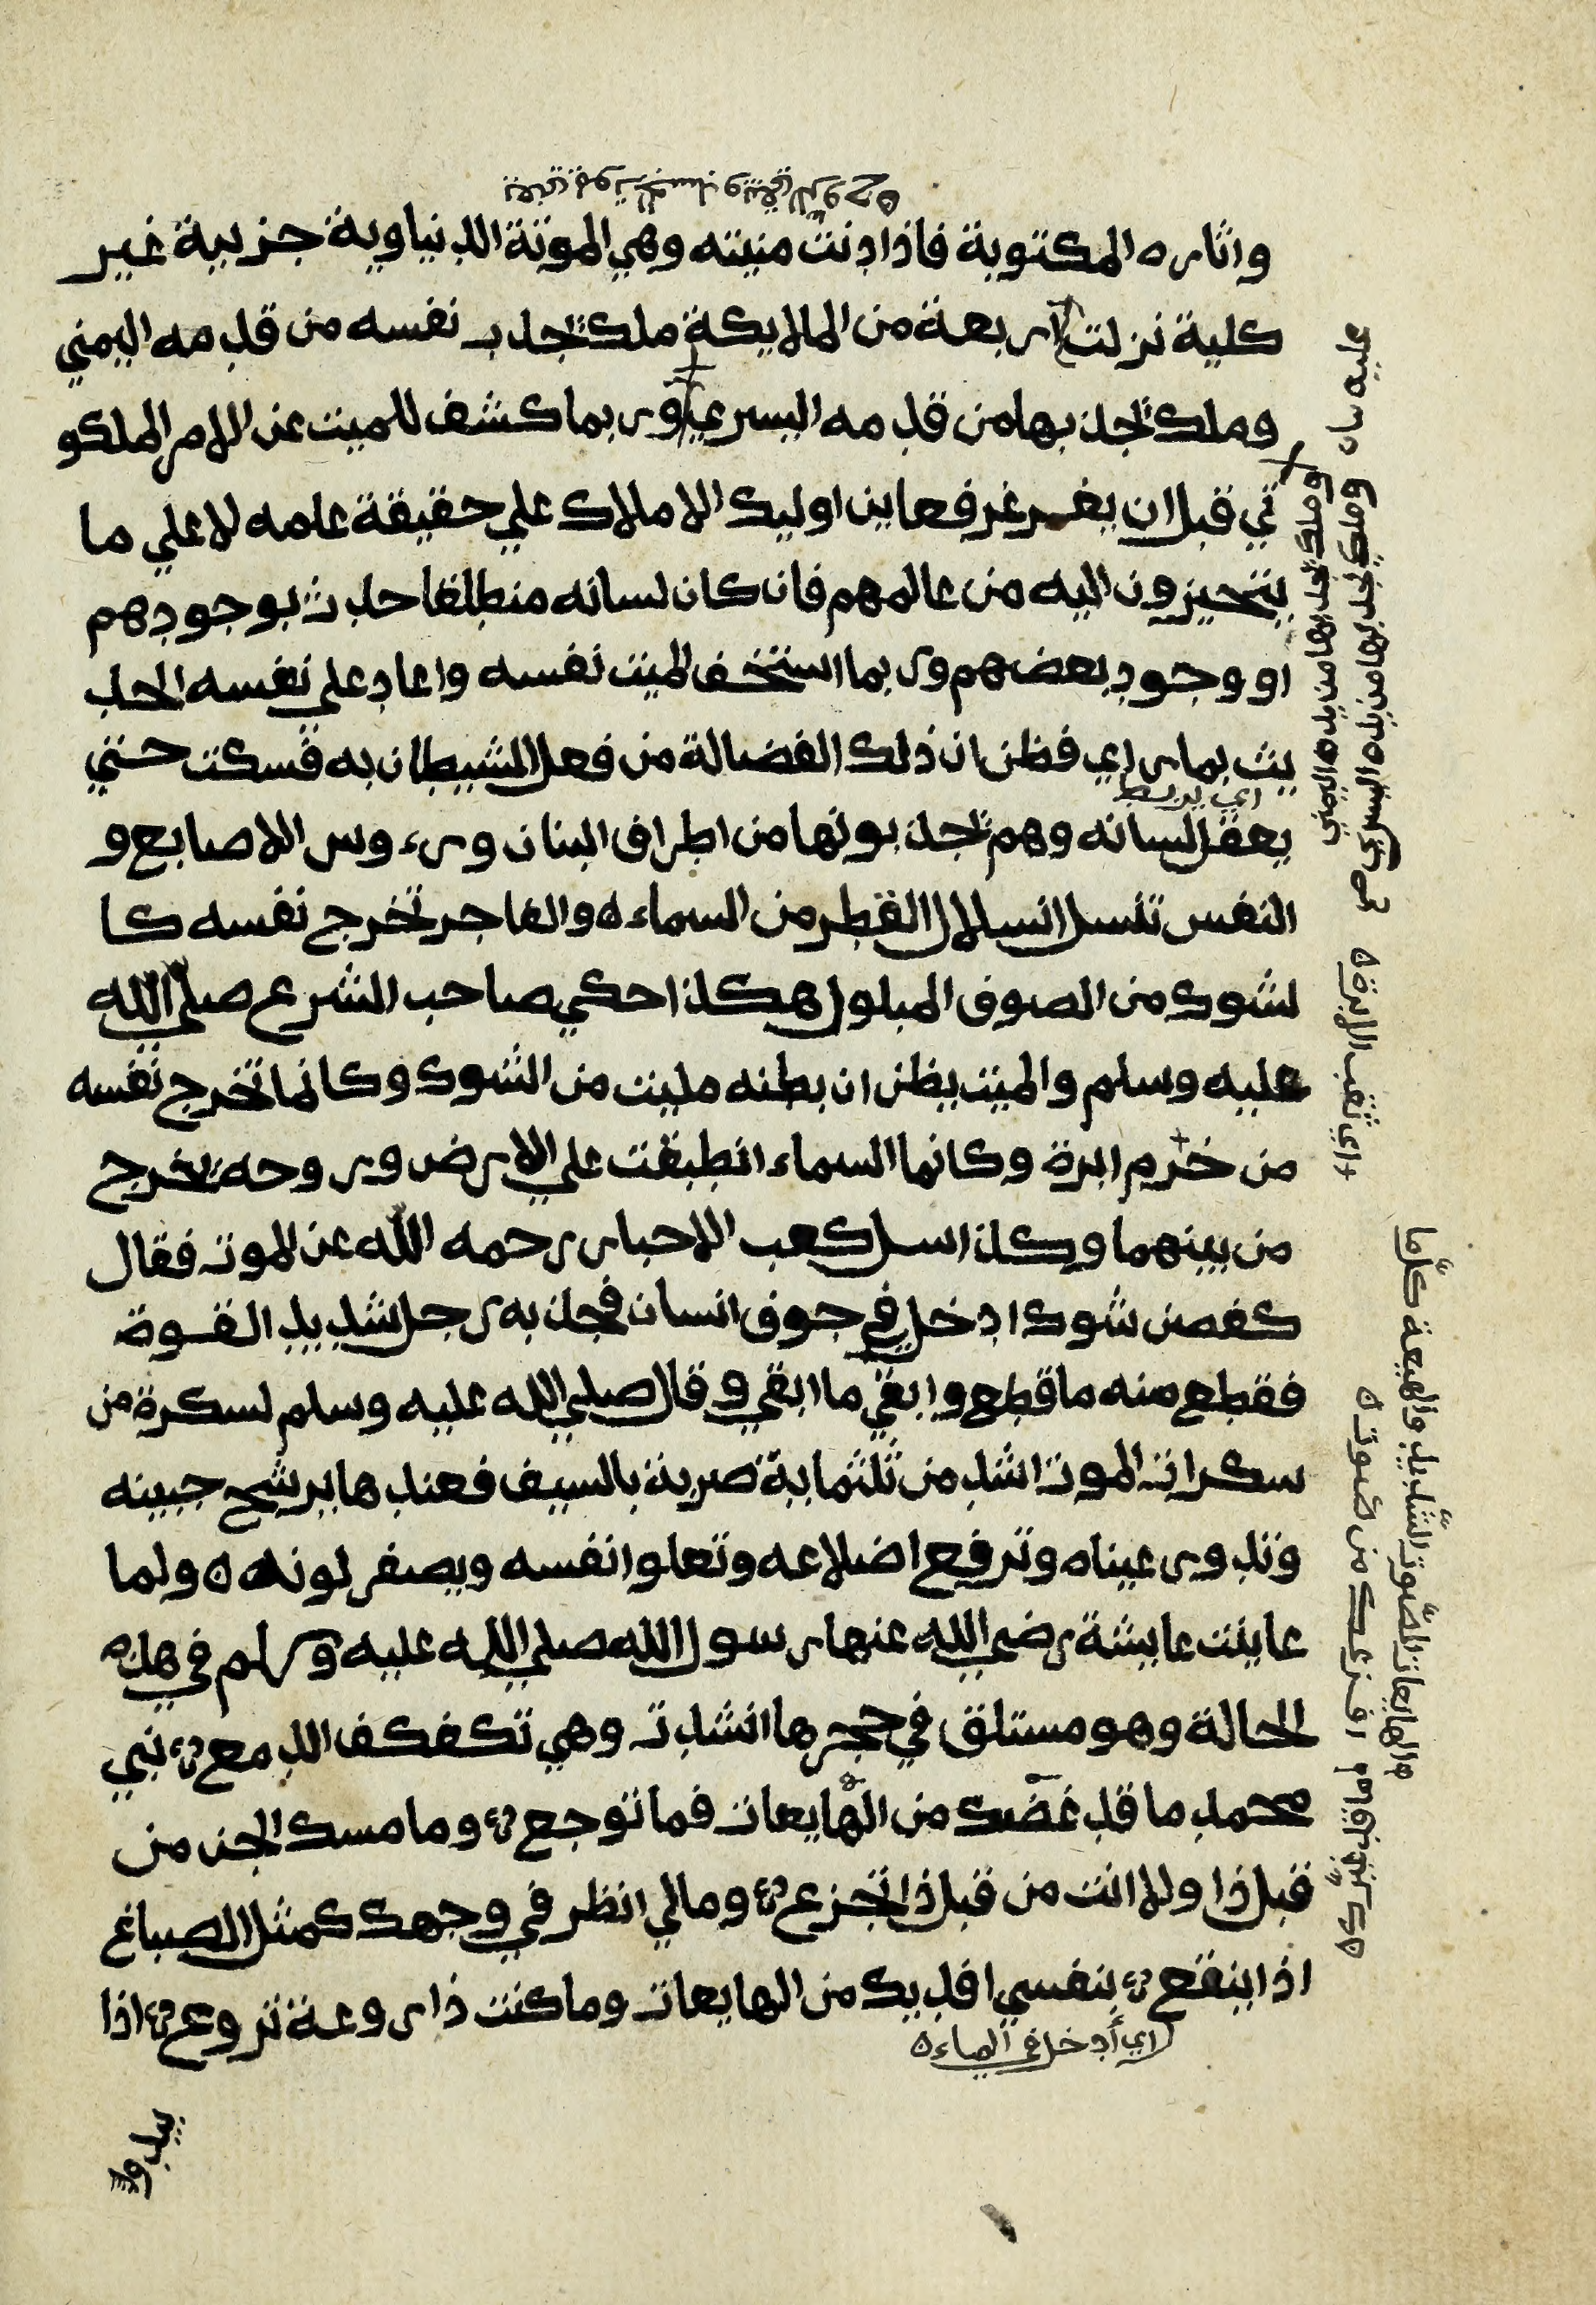 واثاره المكتوبة فاذا دنت منيته وهي الموتة الدنياوية جزيية غير
كلية نزلت اربعة من الملايكة ملك تجذب نفسه من قدمه اليمني
وملك تجذبها من قدمه اليسري وربما كشف للميت عن الامر الملكو
تي قبل ان يغرغر فعاين اوليك الاملاك علي حقيقة عامه لا علي ما
يتحيزون اليه من عالمهم فان كان لسانه منطلقا حدث بوجودهم
او وجود بعضهم وربما استخف الميت نفسه واعاد علي نفسه الحد
يث بما راي فظن ان ذلك الفضالة من فعل الشيطان به فسكت حتي
اي يربط
يعقل لسانه وهم تجذبونها من اطراف البنان ورءوس الاصابع و
النفس تنسل انسلال القطر من السماء ه والفاجر تخرج نفسه كا
لشوك من الصوف المبلول هكذا حكي صاحب الشرع صلي الله
عليه وسلم والميت يظن ان بطنه مليت من الشوك وكانما تخرج نفسه
من خرم ابرة وكانما السماء انطبقت علي الارض وروحه تخرج
من بينهما وكذا سل كعب الاحبار رحمه الله عن الموت فقال
كغصن شوك ادخل في جوف انسان فجذبه رجل شديد القوة
فقطع منه ما قطع وابقي ما ابقي وقال صلي الله عليه وسلم لسكرة من
سكرات الموت اشد من ثلثماية ضربة بالسيف فعندها يرشح جبينه
وتدور عيناه وترفع اضلاعه وتعلوا نفسه ويصفر لونه ه ولما
عاينت عايشة رضي الله عنها رسول الله صلي الله عليه وسلم في هذه
الحالة وهو مستلق في حجرها انشدت وهي تكفكف الدمع نبي
محمد ما قد غضك من الهايعات فما توجع وما مسك الجن من
قبل ذا ولا انت من قبل ذا تجزع ومالي انظر في وجهك كمثل الصباغ
اذا ينقع بنفسي افديك من الهايعات وما كنت ذا روعة تروع اذا
اي أدخل في الماء ه
وملك تجذبها من يده اليمني
وملك تجذبها من يده اليسري صح
اي ثقب الابرة
والهايعات الصوت الشديد والهيعة كلما
افزعك من صوت ه
ما قد غيرك ه